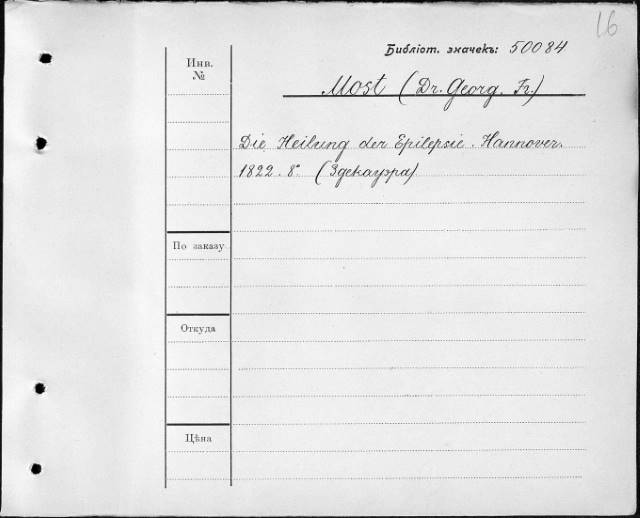 16
Библіот. значекъ: 50084
Инв.
№
Most (Dr. Georg. Fr.)
Die Heilung der Epilepsie. Hannover.
1822. 8°. (Здекауэра)
По заказу
Откуда
Цѣна